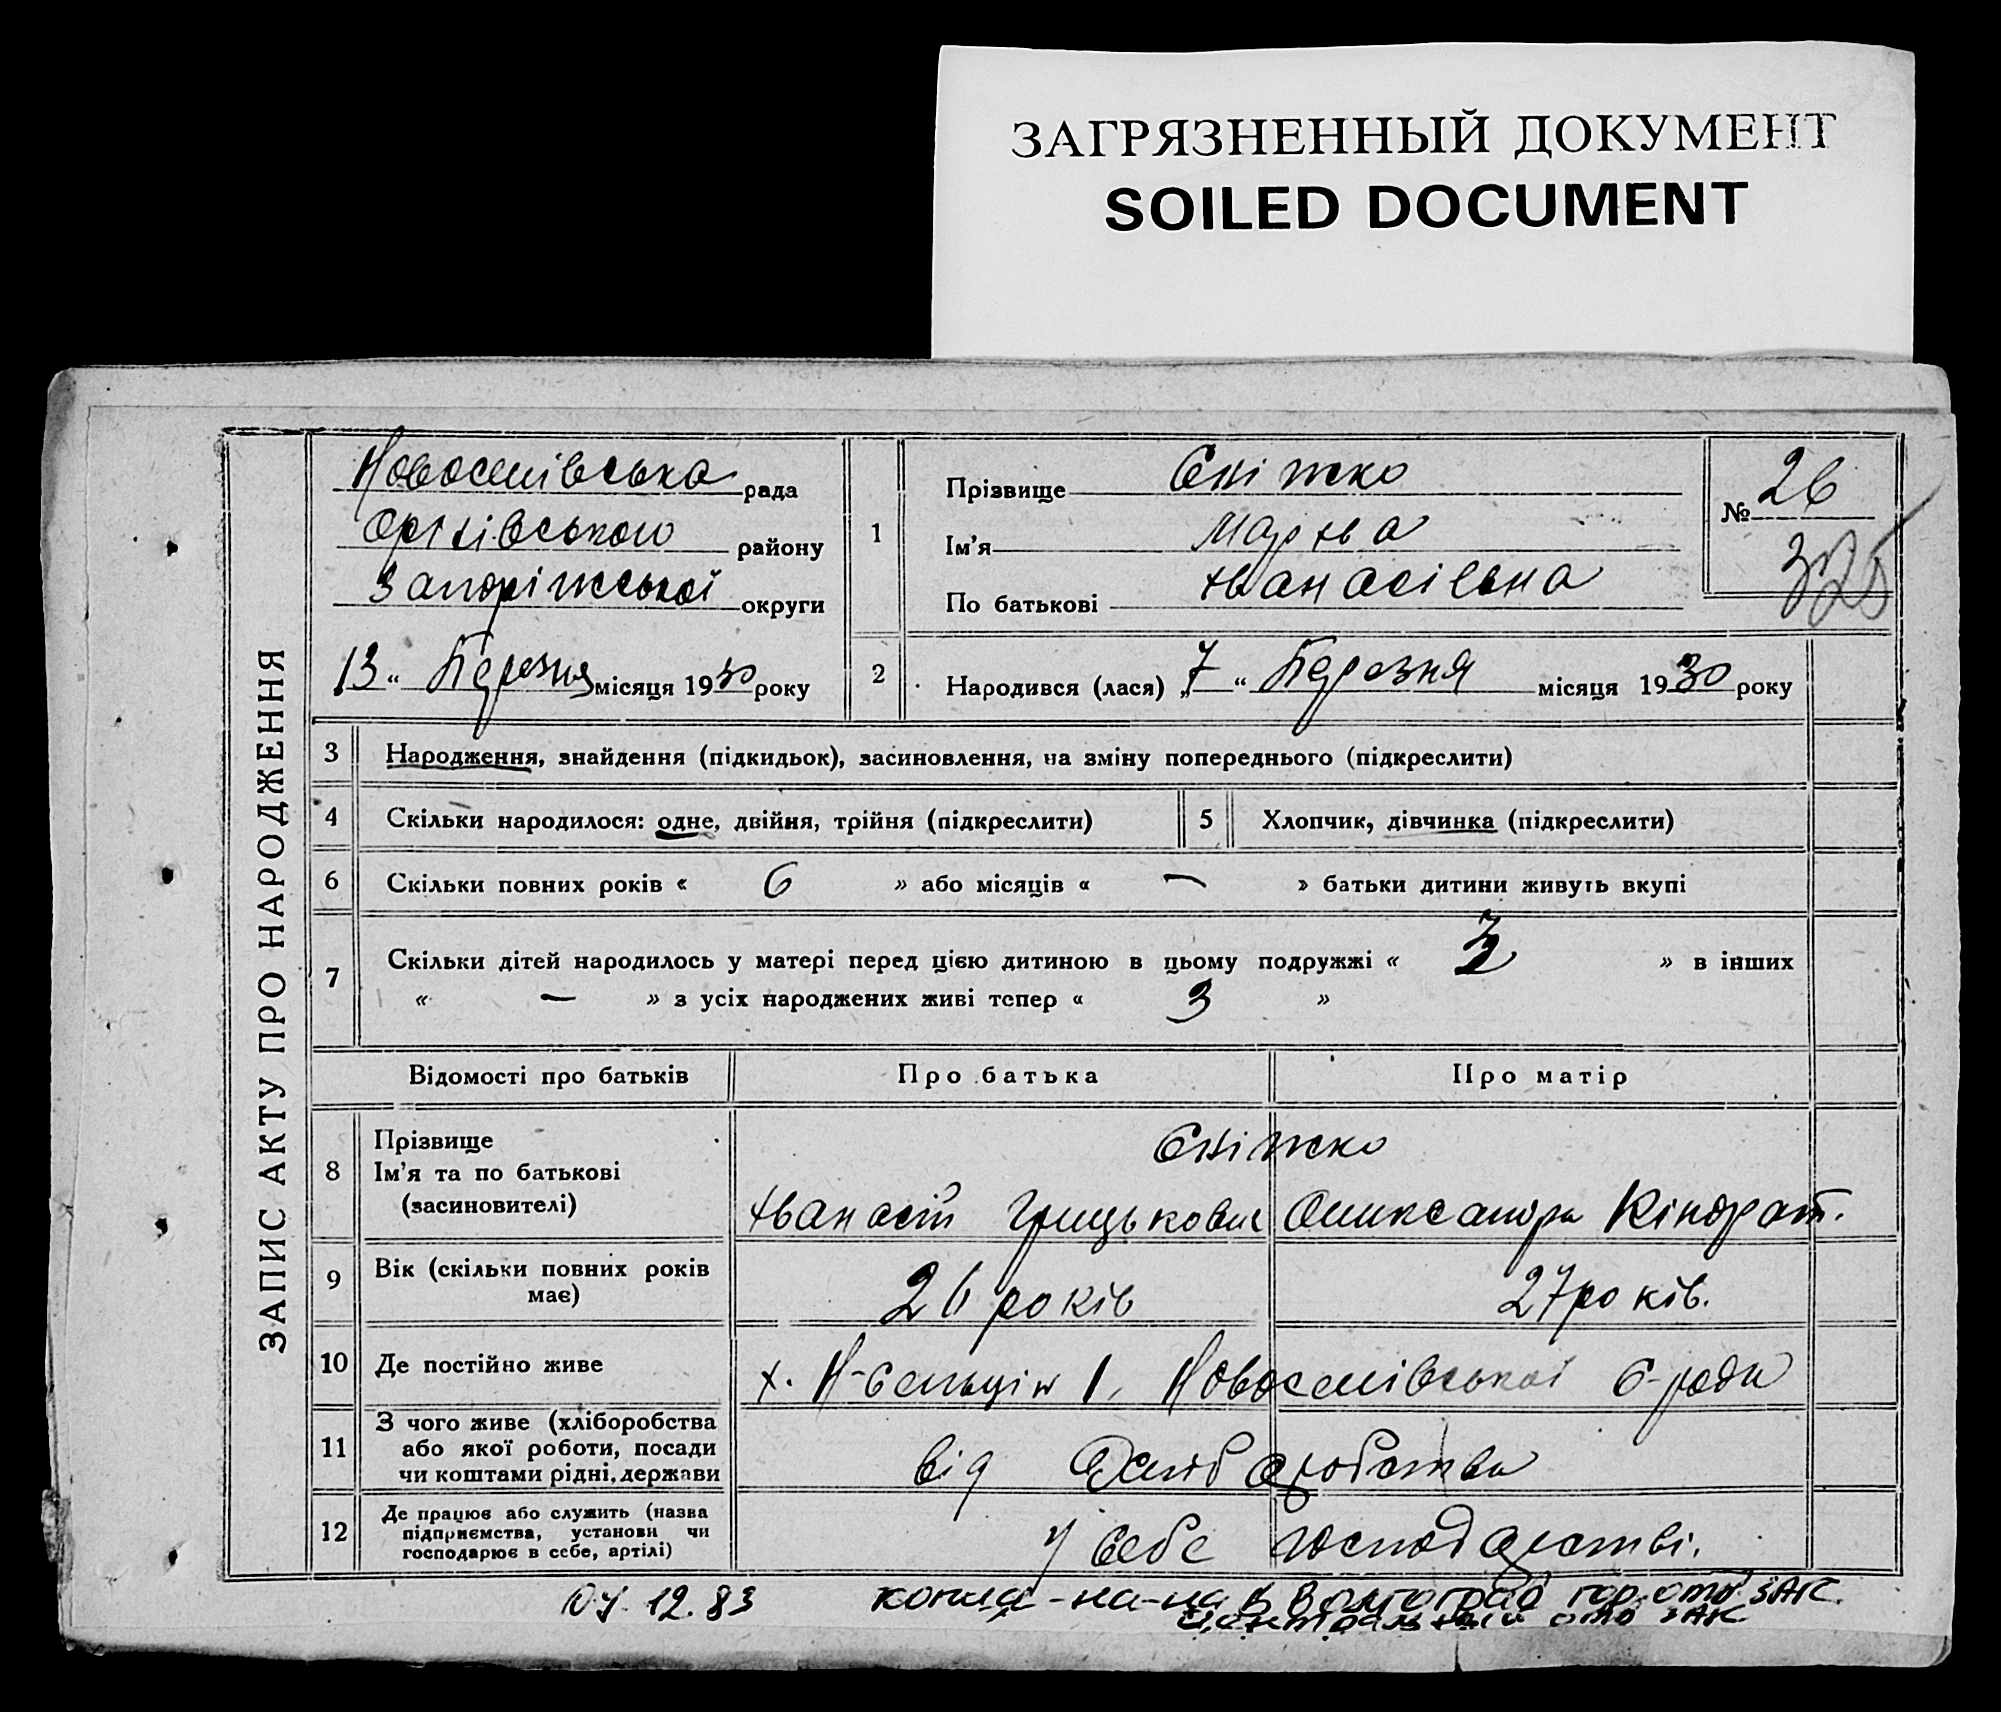 ЗАГРЯЗНЕННЫЙ ДОКУМЕНТ
SOILED DOCUMENT
ЗАПИС АКТУ ПРО НАРОДЖЕННЯ
Новоселівська рада
Оріхівського району
Запоріжської округи
13 " Березня місяця 1930 року
1
Прізвище Сніжко
Ім'я Мархва
По батькові Хванасівна
№ 26
325
2
Народився (лася) „7" Березня місяця 1930 року
3 Народження, знайдення (підкидьок), засиновлення, на зміну попереднього (підкреслити)
4 Скільки народилося: одне, двійня, трійня (підкреслити)
5 Хлопчик, дівчинка (підкреслити)
6 Скільки повних років « 6 » або місяців « — » батьки дитини живуть вкупі
7 Скільки дітей народилось у матері перед цією дитиною в цьому подружжі « 3 » в інших
« — » з усіх народжених живі тепер « 3 »
Відомості про батьків Про батька Про матір
8 Прізвище
Ім'я та по батькові
(засиновителі)
Сніжко
Хванасій Грицькович Олександра Кіндрат.
9 Вік (скільки повних років
має)
26 років 27 років.
10 Де постійно живе х. Н-Селиців 1, Новоселівської С-ради
11 З чого живе (хліборобства
або якої роботи, посади
чи коштами рідні, держави
від хліборобства
12 Де працює або служить (назва
підприємства, установи чи
господарює в себе, артілі)
у себе господарстві.
12.83 копия -на-на в Волгоград гор.отд. ЗАГС.
Центральный отд ЗАГС